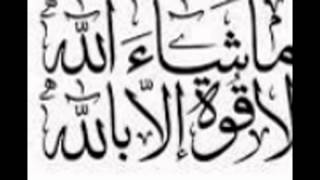 ما شَاءَ اللّٰه
لا قُوَّةَ إِلاَّ بِاللّٰه